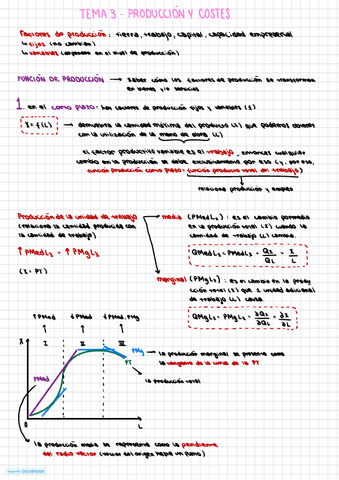 TEMA 3 - PRODUCCIÓN Y COSTES
Factores de producción: tierra, trabajo, capital, capacidad empresarial
↳ fijos (no cambian)
↳ variables (dependen en el nivel de producción)
FUNCIÓN DE PRODUCCIÓN → Saber cómo los factores de producción se transforman
en bienes y/o servicios
1. en el corto plazo: son factores de producción fijos y variables (1)
X = f(L) → demuestra la cantidad máxima del producto (X) que podemos obtener
con la utilización de la mano de obra (L)
el factor productivo variable es el trabajo, entonces cualquier
cambio en la producción se debe exclusivamente por eso (y, por eso,
función producción corto plazo: función producto total del trabajo)
relaciona producción y empleo
Producción de la unidad de trabajo
(relaciona la cantidad producida con
la cantidad de trabajo)
↑ PMedLs = ↑ PMgLs
(X = PT)
media (PMedLs): es el cambio promedio
en la producción total (X) cuando la
cantidad de trabajo (L) cambia
QMedLs = PMedLs = Qs/QL = X/L
marginal (PMgLs): es el cambio en la produ
cción total (X) que 1 unidad adicional
de trabajo (L) causa
QMgLs = PMgLs = ∂Qs/∂QL = ∂X/∂L
↑PMed ↓PMed ↓PMed, PMg
X I II III
PMed
PMg
PT
0 L
la producción marginal se presenta como
la tangente de la curva de la PT
la producción total
la producción media se representa como la pendiente
del radio vector (vector del origen hasta un punto)